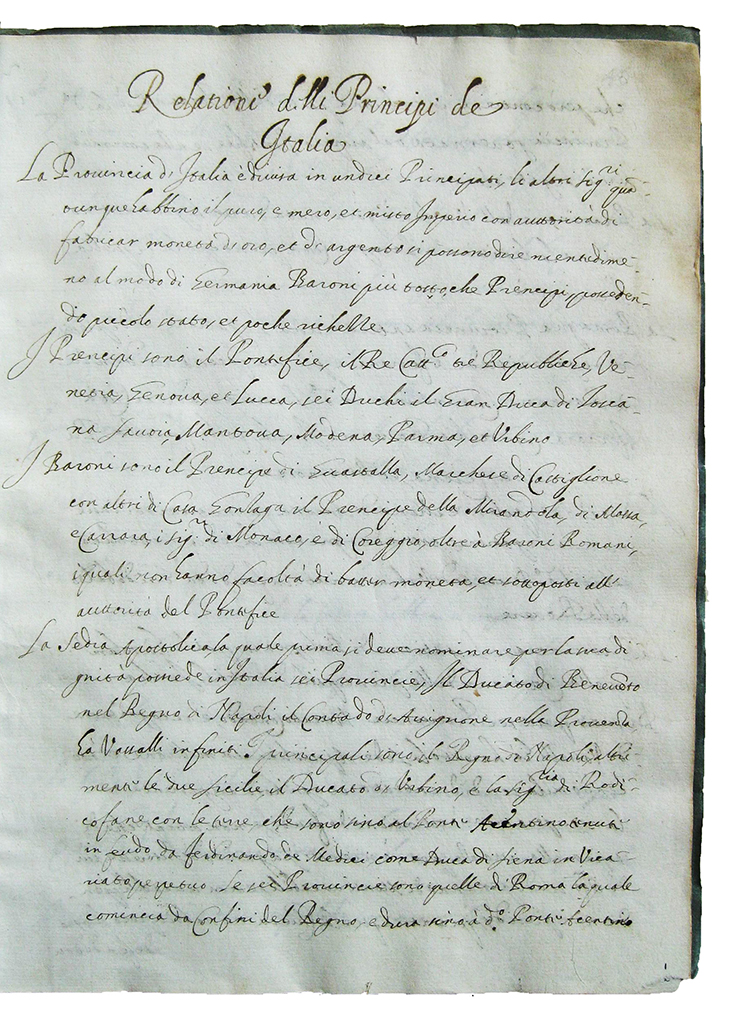 Relationi d.lli Principi de
Italia
La Provincia d'Italia è divisa in undici Principati, li altri sig.ri quā-
tunque habbino il puro, e mero, et misto Imperio con autorità di
fabricar moneta di oro, et di argento si possono dire nientedime-
no al modo di Germania Baroni più tosto, che Prencipi, posseden-
do piccolo stato, et poche richezze
I Prencipi sono il Pontifice, il Re Catt.o tre Republiche, Ve-
netia, Genova, et Lucca, sei Duchi il Gran Duca di Tosca-
na Savoia, Mantova, Modena, Parma, et Urbino
I Baroni sono il Prencipe di Guastalla, Marchese di Castiglione
con altri di Casa Gonzaga il Prencipe della Mirandola, di Massa,
e Carrara, i sig.ri di Monaco, e di Coreggio, oltre à Baroni Romani,
i quali non hanno facoltà di batter moneta, et sottoposti all'
autorità del Pontifice
La Sedia Apostolica la quale prima si deve nominare per la sua di
gnità possiede in Italia sei Provincie, Il Ducato di Benevēto
nel Regno di Napoli il Contado di Avignone nella Provenza
ha Vassalli infiniti I principali sono il Regno di Napoli altri-
menti le due Sicilie il Ducato di Urbino, e la sig.ria di Radi-
cofane con le terre che sono sino al Ponte Acentino tenuti
in feudo da Ferdinando de Medici come Duca di Siena in Vica-
riato perpetuo. Le sei Provincie sono quelle di Roma la quale
comincia da Confini del Regno, e dura sino à d.o Ponte Acentino